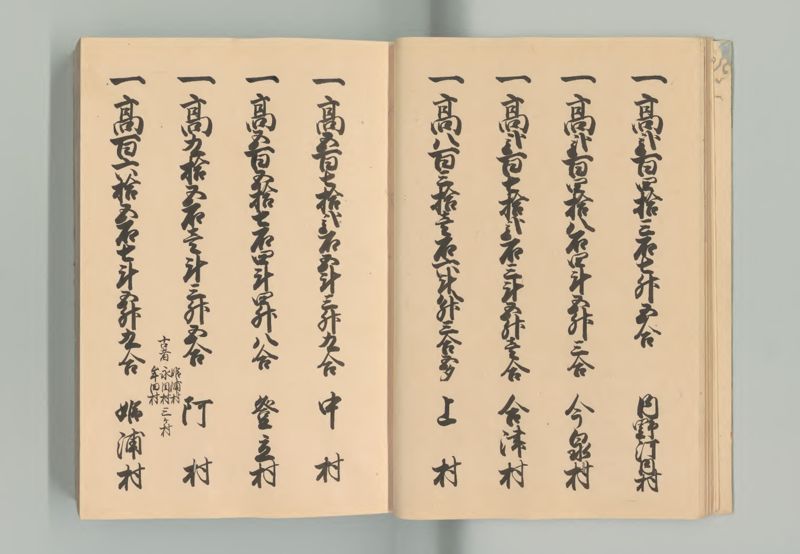 一高弐百四拾三石七升五合 内野河内村
一高弐百四拾八石四斗五升三合 今泉村
一高弐百七拾弐石三斗五升壱合 合津村
一高八百三拾壱石六斗八升三合余 上村
一高五百七拾弐石五斗三升九合 中村
一高五百五拾七石四斗四升八合 登立村
一高九拾五石壱斗三升五合 阿村
古者
姫浦村
永目村三ヶ村
牟田村
一高百六拾五石七斗五升九合 姫浦村